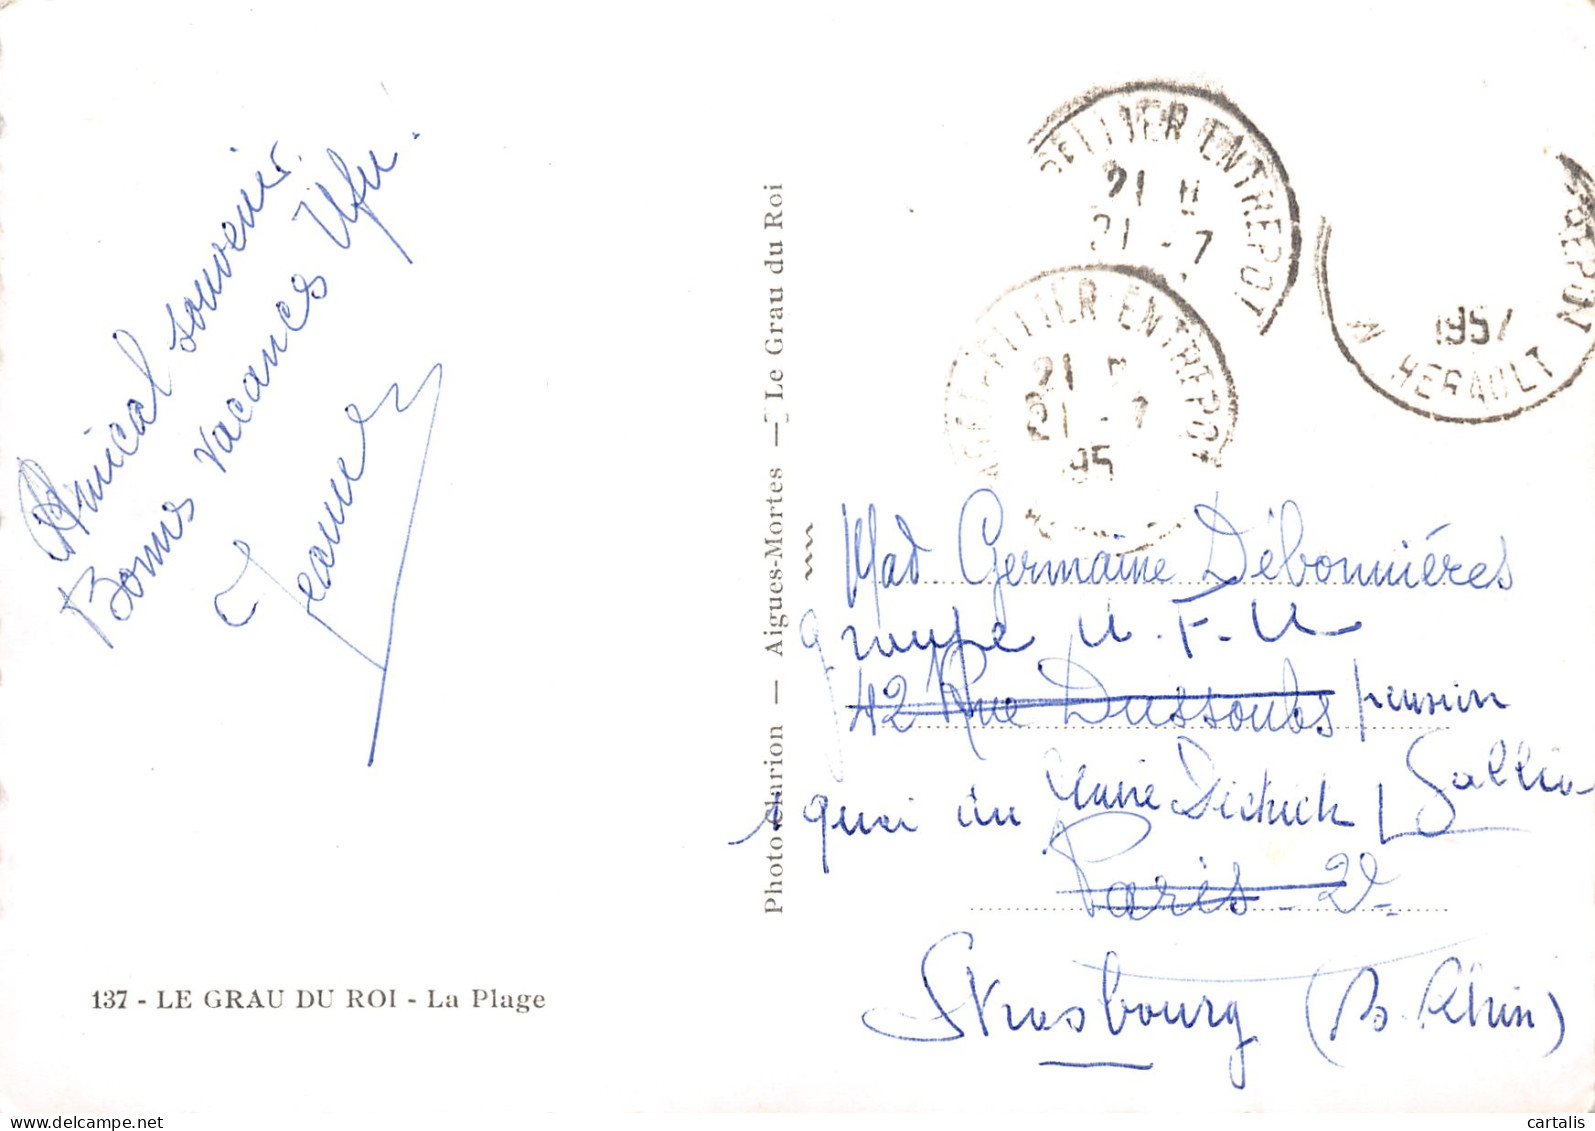 Amical souvenir.
Bonnes vacances Ufu.
Jeanne
137 - LE GRAU DU ROI - La Plage
Photo Clarion — Aigues-Mortes — Le Grau du Roi
PELLIER ENTREPOT
21 H
21 - 7
PELLIER ENTREPOT
21 H
21 - 7
195
REPOT
1957
HERAULT
Mad Germaine Débonnières
groupe U.F.U
42 Rue Dussoubs pension
quai du Maire Dietrich Gallia
Paris - 2e
Strasbourg (B. Rhin)
cartalis